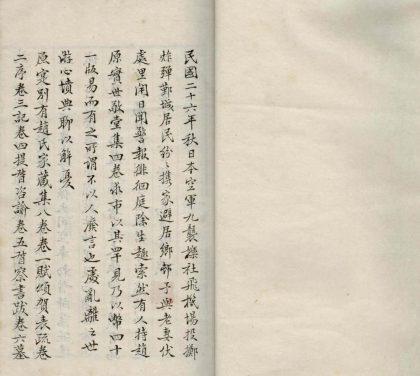 民國二十六年秋日本空軍九襲櫟社飛機場投擲
炸彈鄞城居民紛々携家避居鄉邨予與老妻伏
處里閈日聞警報徘徊庭除生趣索然有人持趙
原實世敬堂集四卷求市以其罕見乃以幣四十
一版易而有之可謂不以人廢言也處亂離之世
游心墳典聊以解憂
原寔別有趙氏家藏集八卷卷一賦頌賀表疏卷
二序卷三記卷四提督咨諭卷五督察書跋卷六墓